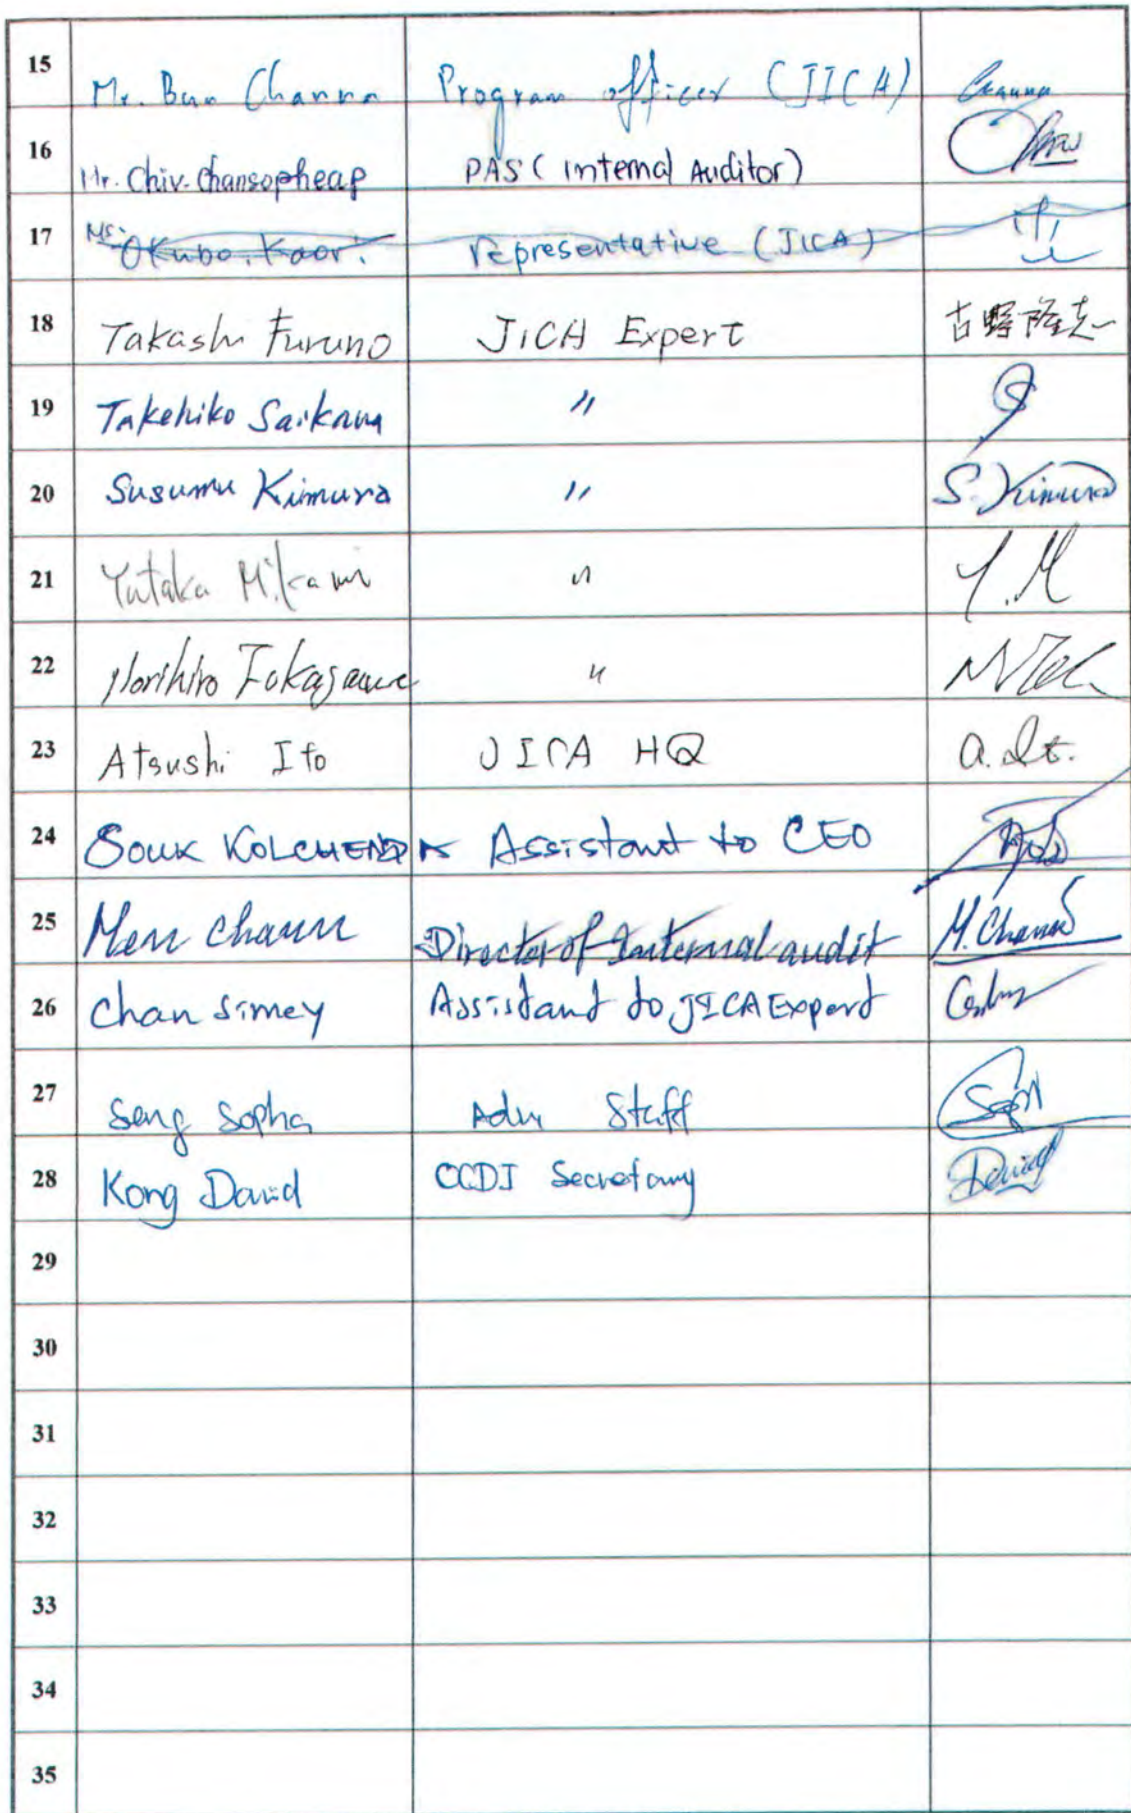 15 Mr. Bun Channa Program officer (JICA) Channa
16 Mr. Chiv. Chansopheap PAS (internal Auditor)
17 Ms. Okubo. Kaori representative (JICA)
18 Takashi Furuno JICA Expert 古野隆志
19 Takehiko Saikawa 〃
20 Susumu Kimura 〃 S. Kimura
21 Yutaka Mikami 〃 Y. M
22 Norihiro 〃
23 Atsushi Ito JICA HQ a. It.
24 Souk KOLCHENDA Assistant to CEO
25 Men Chaun Director of Internal audit
26 Chan Simey Assistant to JICA Expert
27 Seng Sopha Adm Staff
28 Kong David CCDI Secretary David
29
30
31
32
33
34
35